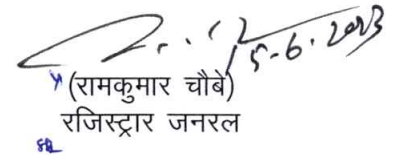 15-6-2023
(रामकुमार चौबे)
रजिस्ट्रार जनरल